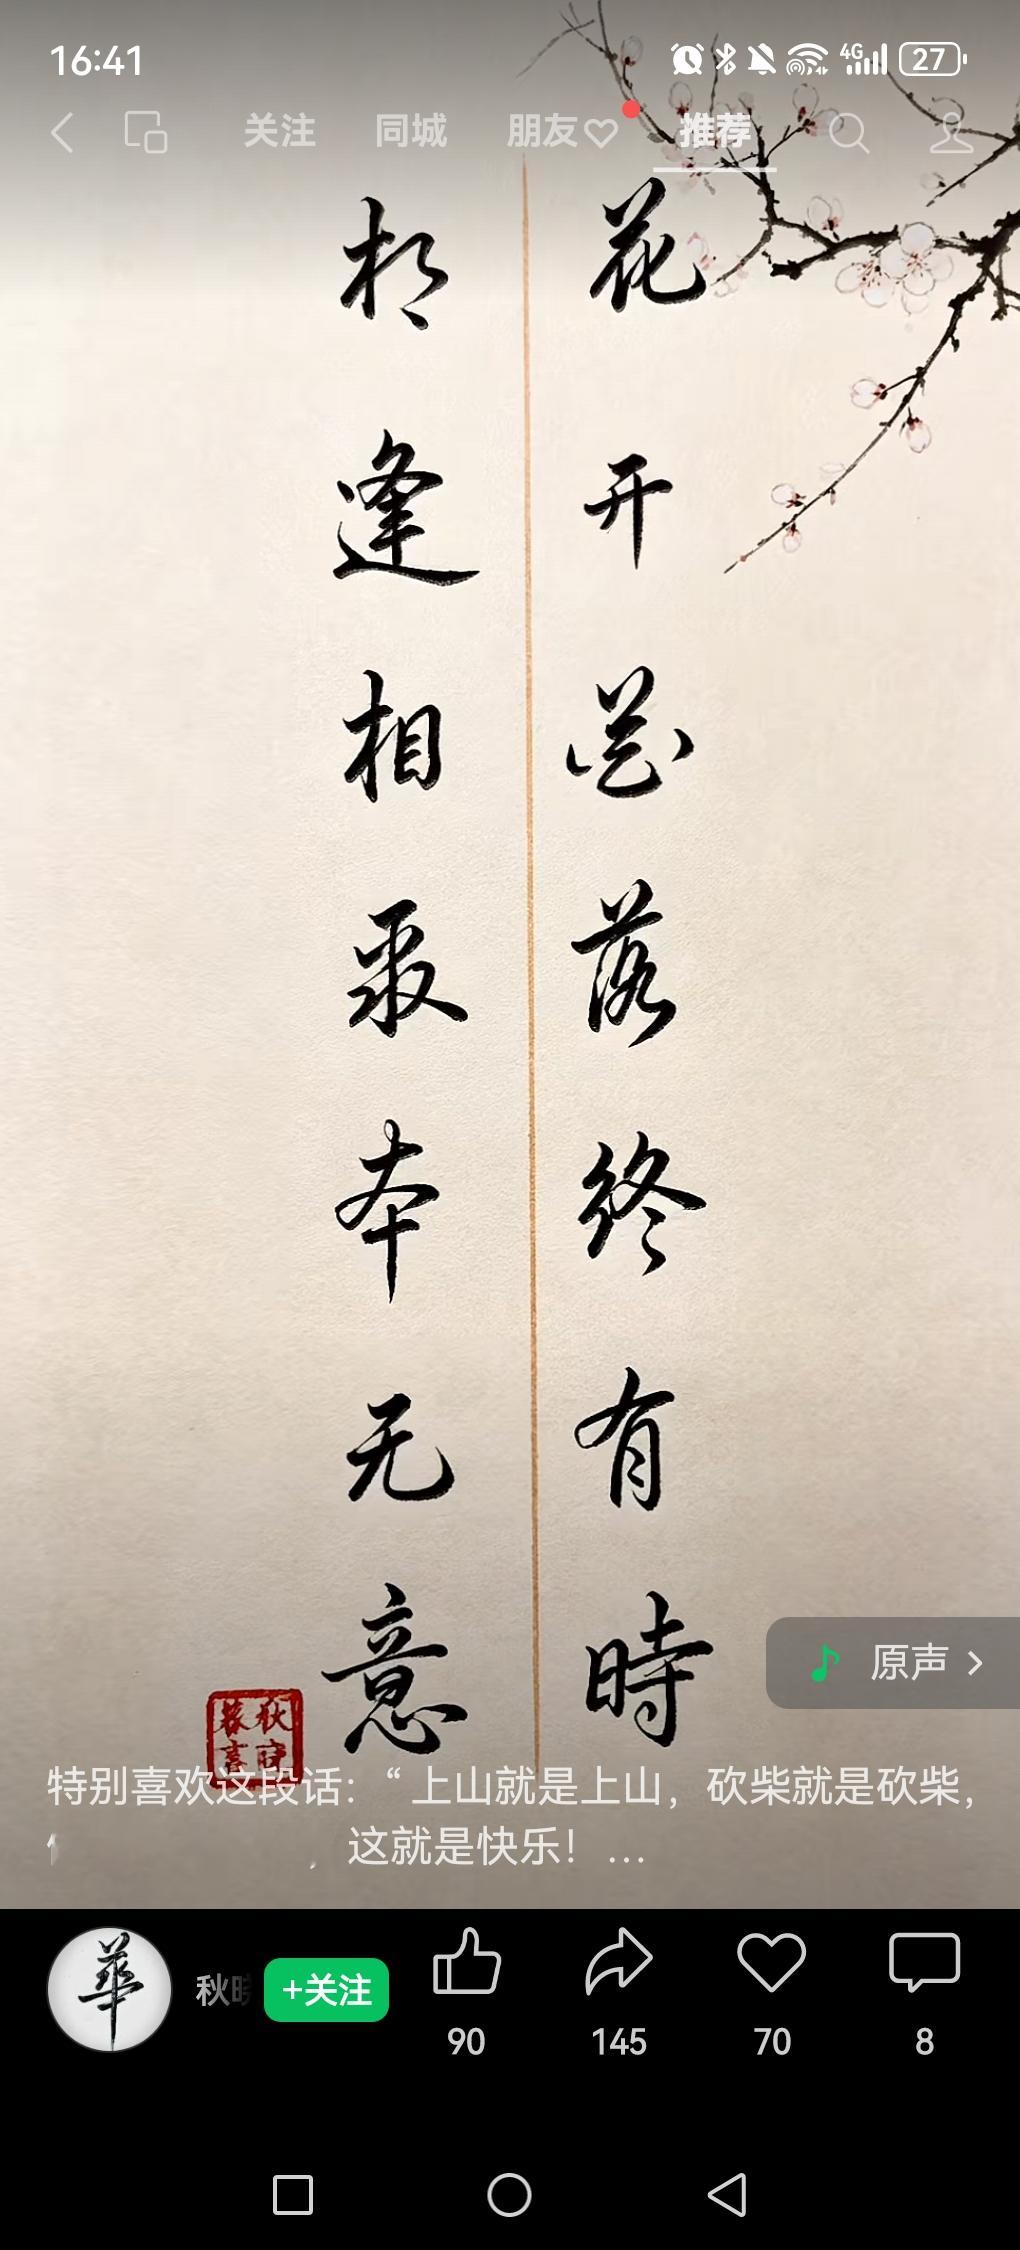 16:41
4G
27
关注 同城 朋友 推荐
花开花落终有時
相逢相聚本无意
原声
特别喜欢这段话：“ 上山就是上山，砍柴就是砍柴，
这就是快乐！...
華
秋晓
+关注
90
145
70
8